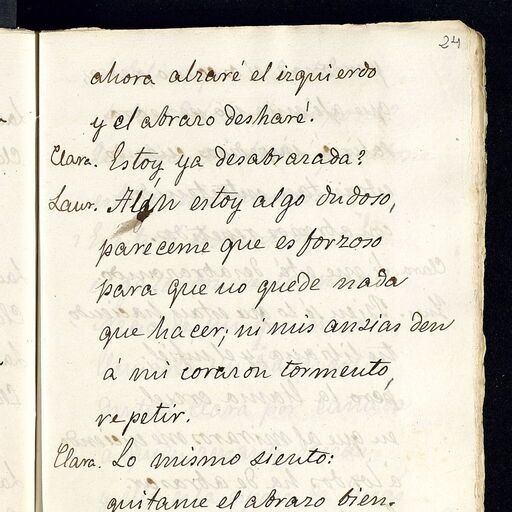 24
ahora alzaré el izquierdo
y el abrazo desharé.
Clara. Estoy ya desabrazada?
Laur. Aún estoy algo dudoso,
pareceme que es forzoso
para que no quede nada
que hacer; ni mis ansias den
á mi corazon tormento,
repetir.
Clara. Lo mismo siento:
quitame el abrazo bien.